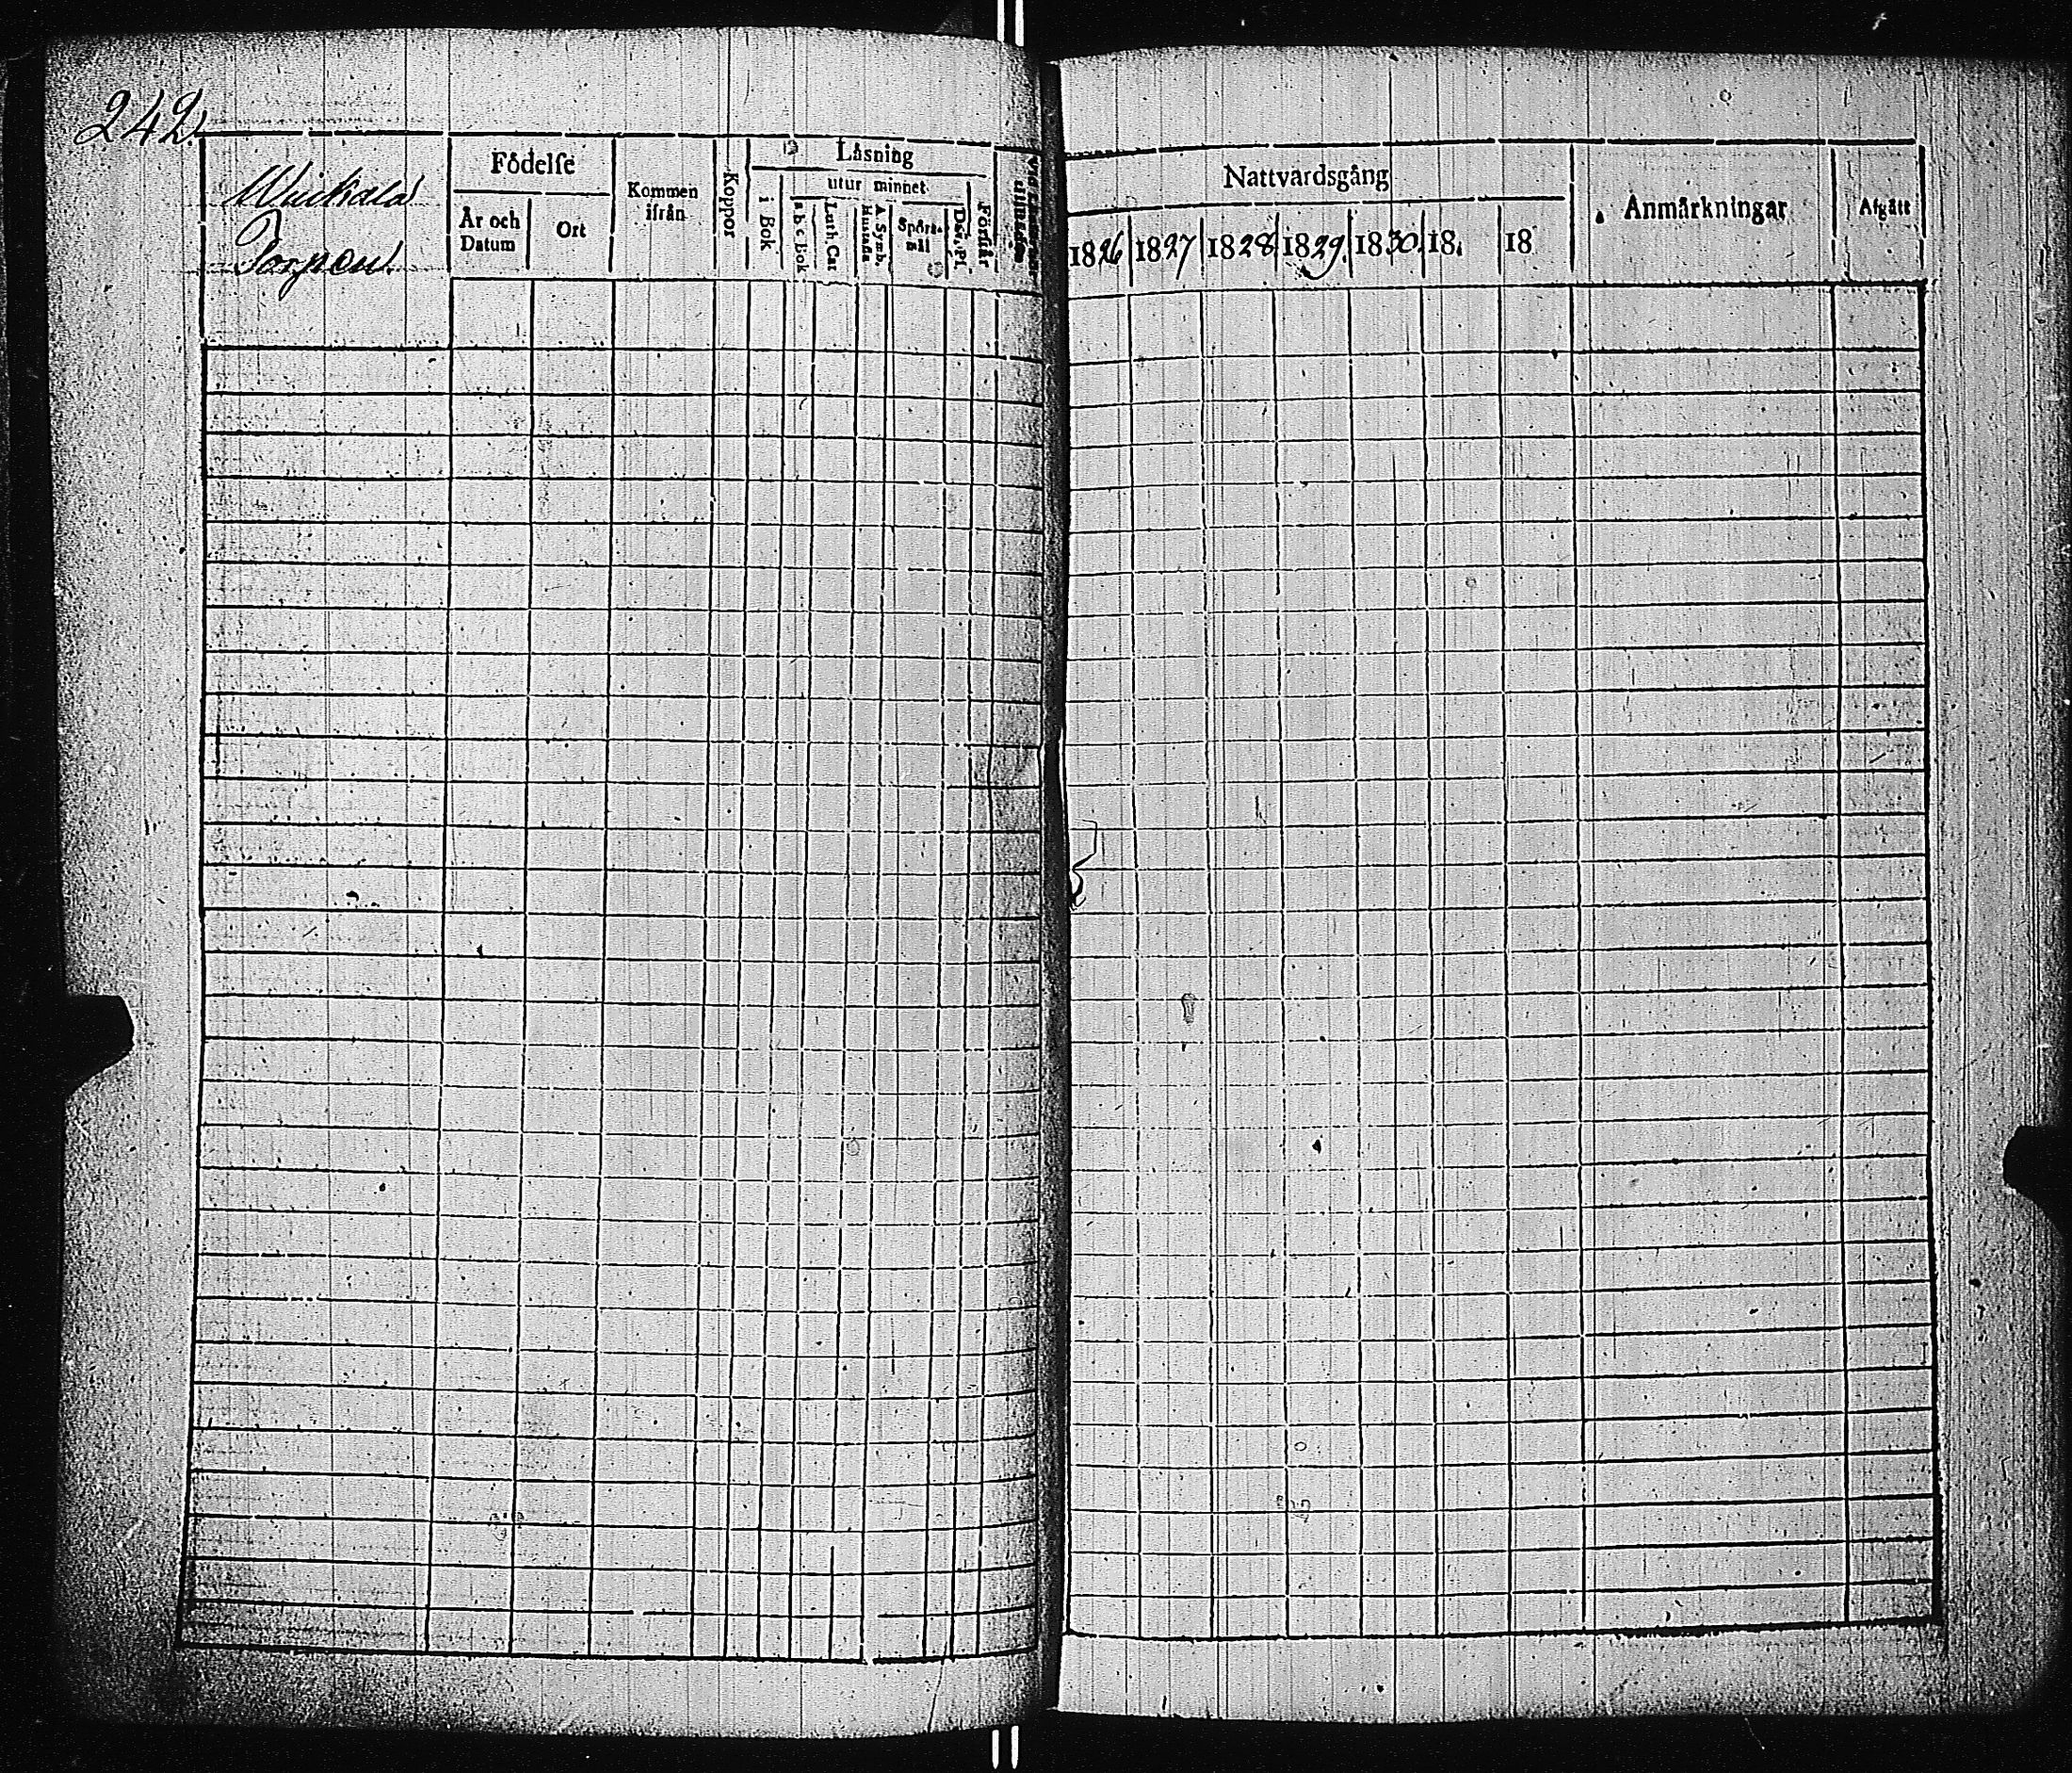 242.
Torpeu.
Födelse
År och Datum
Ort
Kommen ifrån
Koppor
Läsning
i Bok
utur minnet
a b c bok
Luth. Cat
A. Symb. Hustafla
Spörsmål
Dav. Ps.
Förstår
Nattvardsgång
1826
1827
1828
1829.
1830.
18.
18
Anmärkningar
Afgått